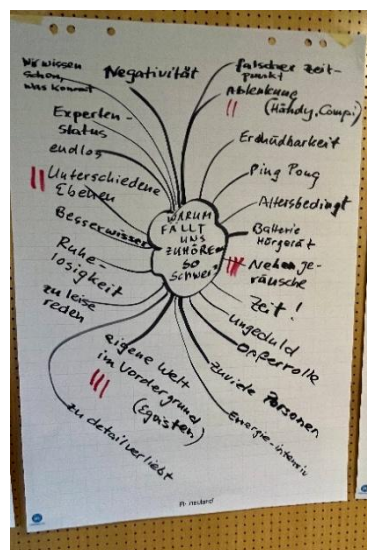 Wir wissen
schon,
was kommt
Negativität
Experten-
status
endlos
Unterschiedene
Ebenen
Besserwisser
Ruhe-
losigkeit
zu leise
reden
eigene Welt
im Vordergrund
(Egoisten)
zu detailverliebt
WARUM
FÄLLT
UNS
ZUHÖREN
SO
SCHWER?
falscher Zeit-
punkt
Ablenkung
(Handy, Compi)
Ermüdbarkeit
Ping Pong
Altersbedingt
Batterie
Hörgerät
Nebenge-
räusche
Zeit!
Ungeduld
Opferrolle
zuviele Personen
Energie-intensiv
neuland